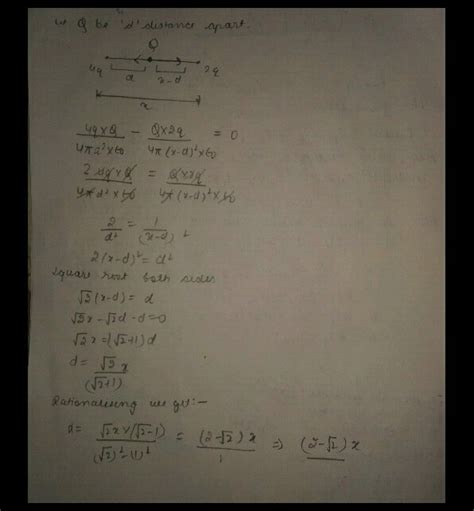 let Q be 'd' distance apart.
Q
4q 2q
d x-d
x
4q×Q / 4πd²×ε0 - Q×2q / 4π(x-d)²×ε0 = 0
2 4q×Q / 4πd²×ε0 = Q×2q / 4π(x-d)²×ε0
2/d² = 1/(x-d)²
2(x-d)² = d²
Square root both sides
√2(x-d) = d
√2x - √2d - d = 0
√2x = (√2+1)d
d = √2x / (√2+1)
Rationalising we get:-
d = √2x×(√2-1) / (√2)²-(1)² = (2-√2)x / 1 ⇒ (2-√2)x